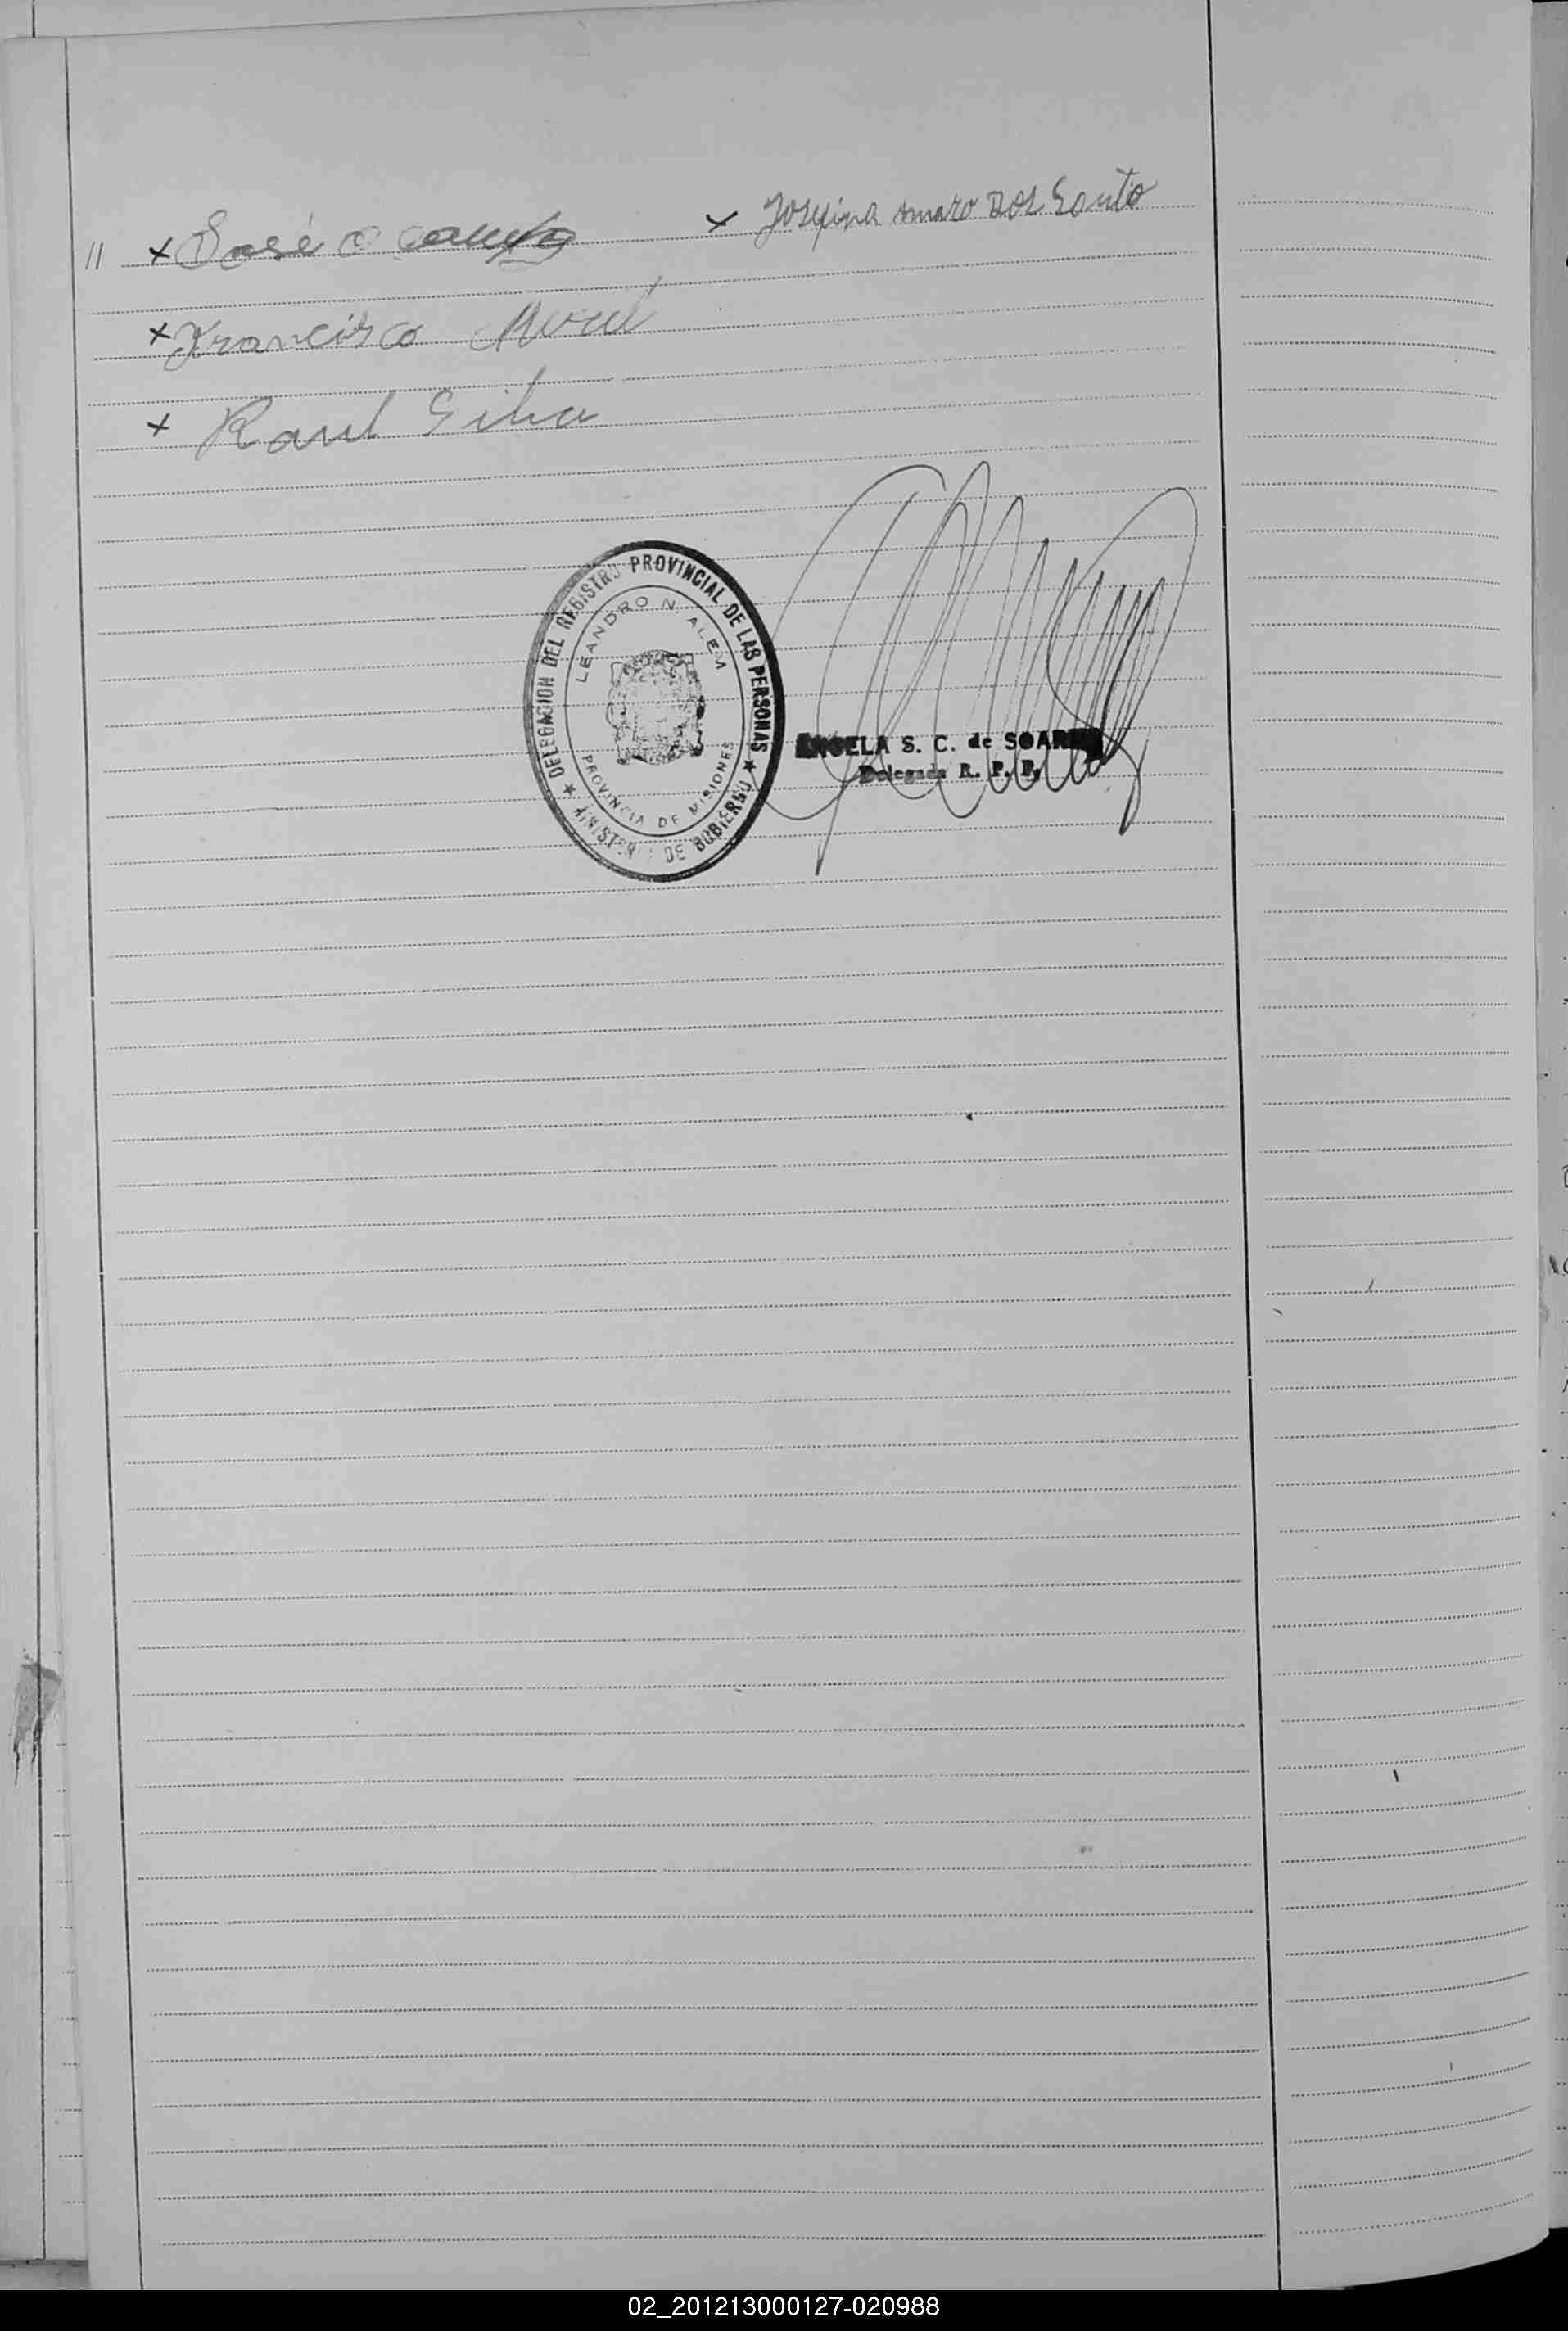 // x José Ocampo x Josefina Amaro Dos Santo
x Francisco
x Raul Silva
DELEGACION DEL REGISTRO PROVINCIAL DE LAS PERSONAS
LEANDRO N. ALEM
PROVINCIA DE MISIONES
★ MINISTERIO DE GOBIERNO ★
ANGELA S. C. de SOARES
Delegada R. P. P.
02_201213000127-020988